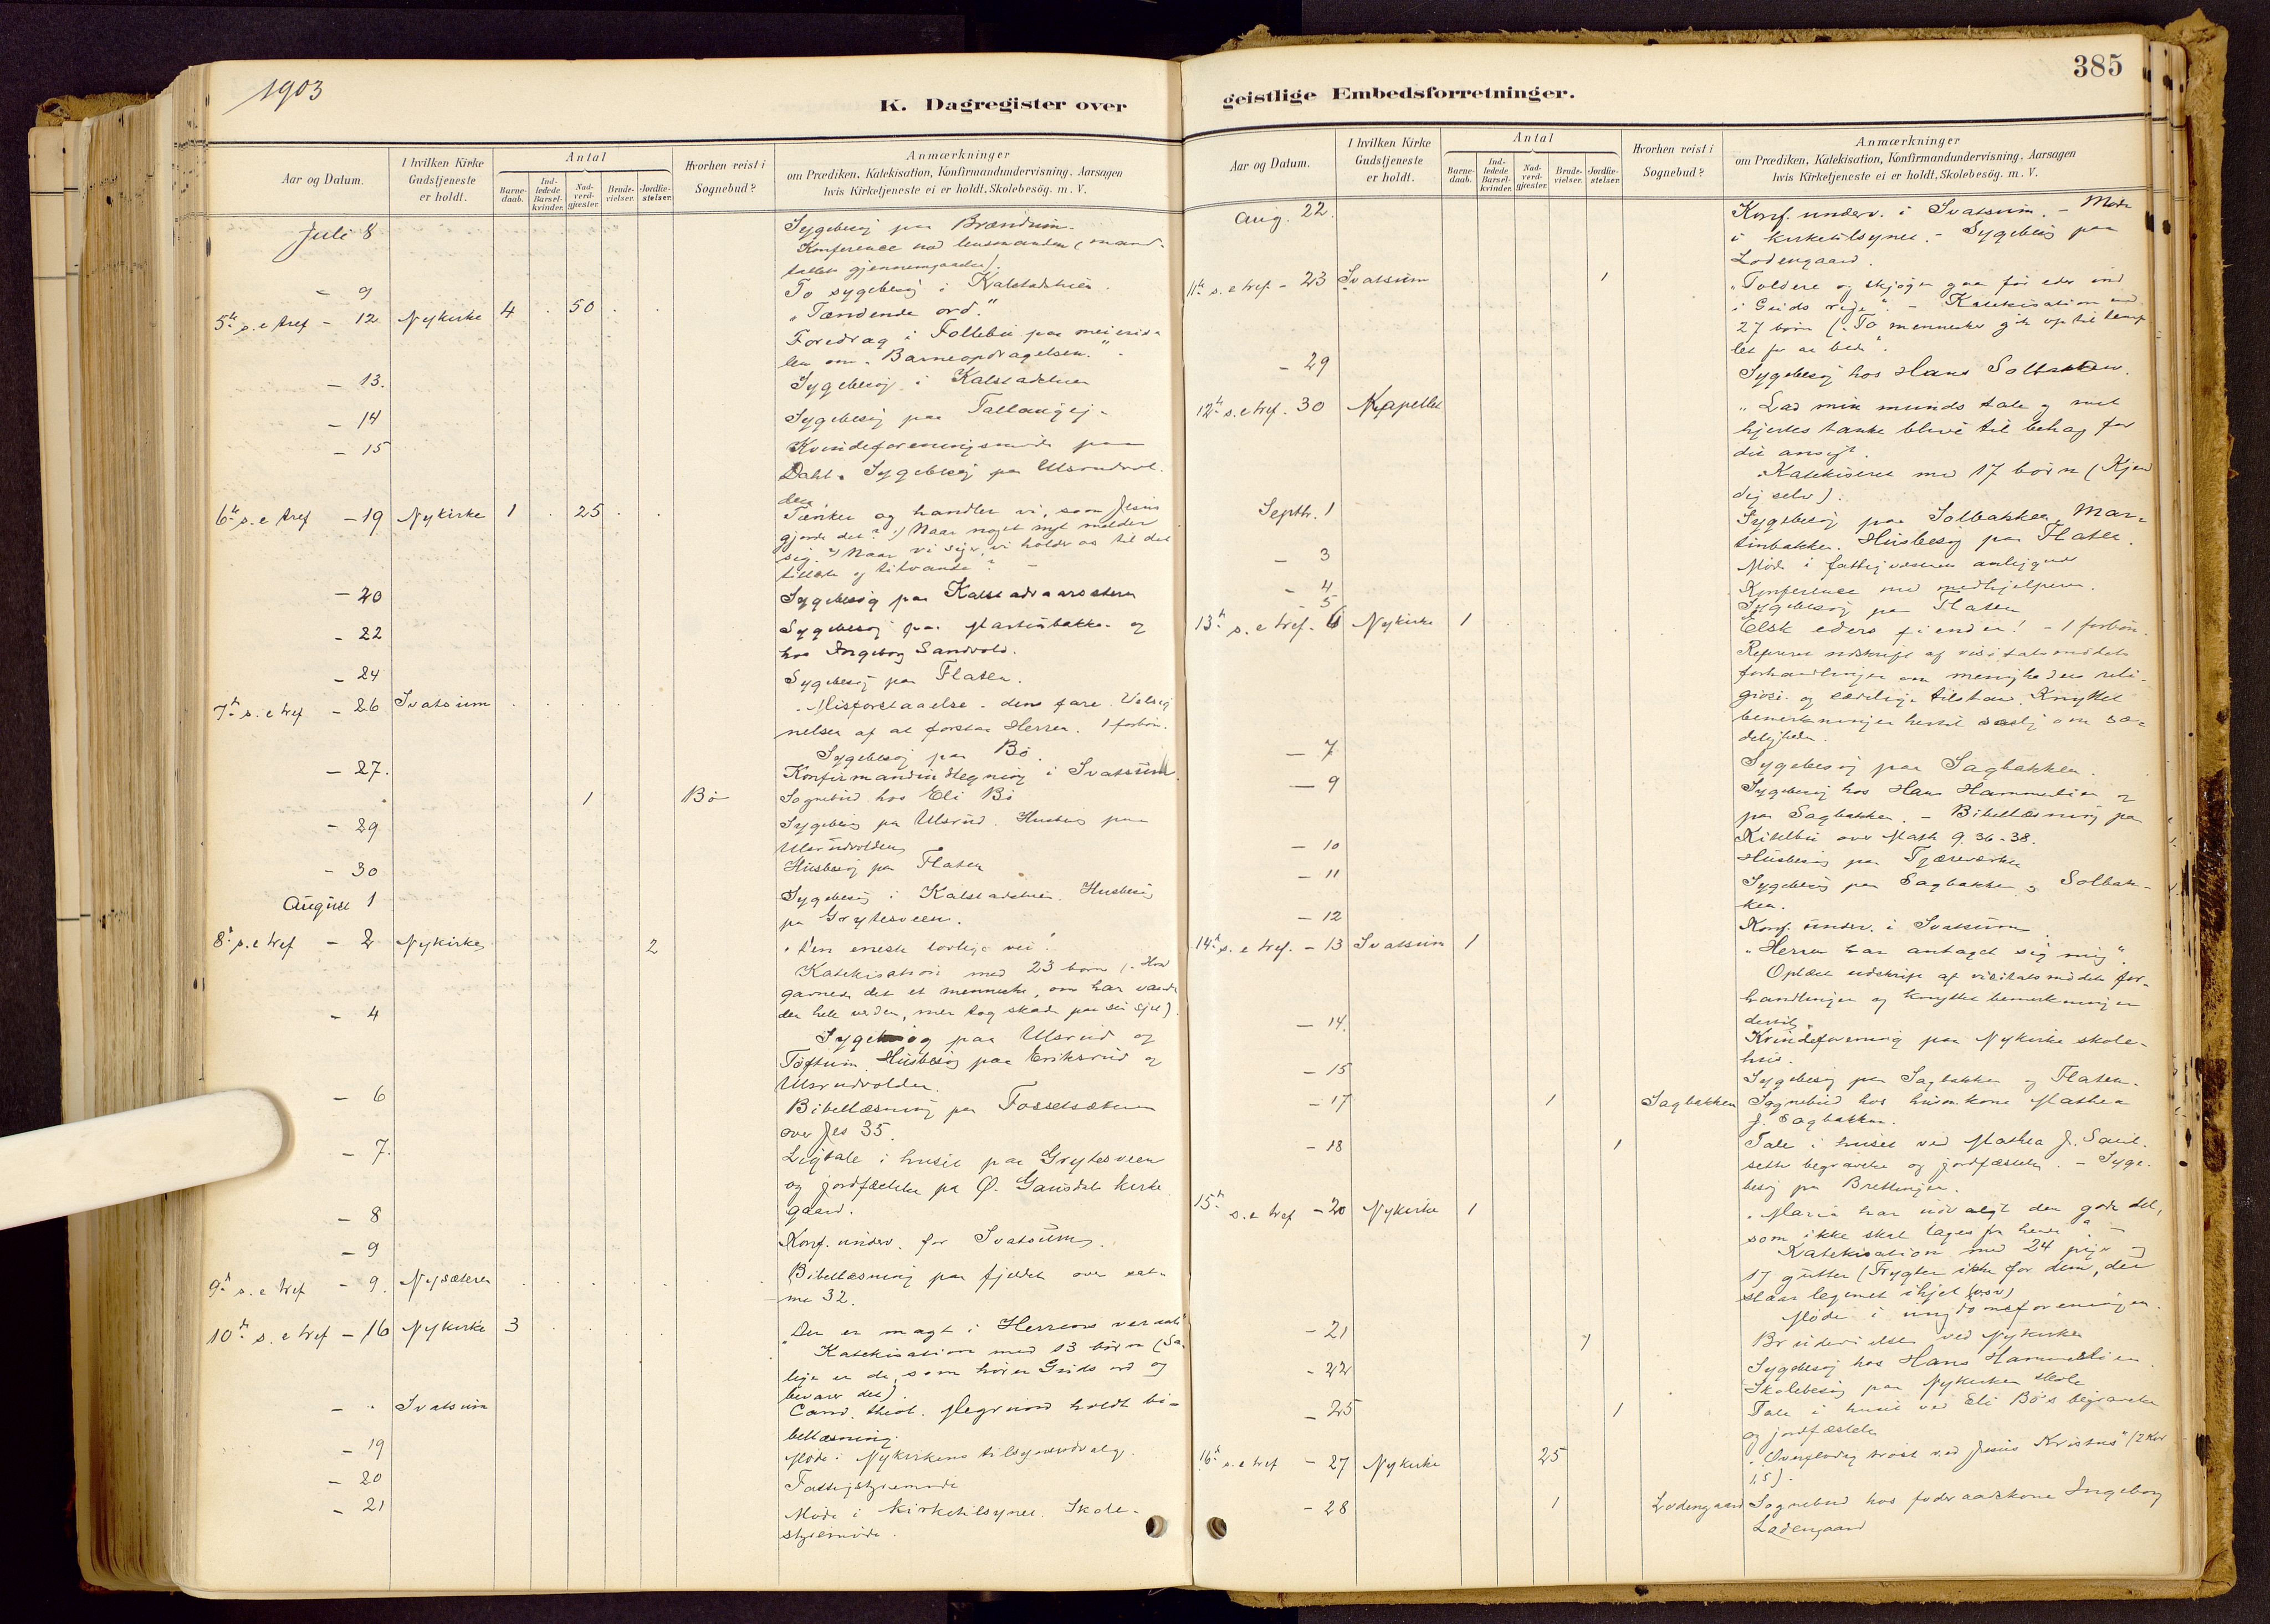 1903
K. Dagregister over
Aar og Datum.
I hvilken Kirke Gudstjeneste er holdt.
Antal
Barne-daab.
Ind-ledede Barsel-kvinder.
Nad-verd-gjæster.
Brude-vielser.
Jordfæ-stelser.
Hvorhen reist i Sognebud?
Anmærkninger
om Prædiken, Katekisation, Konfirmandundervisning, Aarsagen
hvis Kirketjeneste ei er holdt, Skolebesøg. m. V.
Juli 8 Sygebesøg paa Brændum.
Konference med lensmanden (mand-
tallets gjennemgaaelse).
- 9 To sygebesøg i Kalstadlien.
5te s. e tref - 12 Nykirke 4 . 50 . . "Tændende ord."
Foredrag i Follebu paa meierisa-
len om "Barneopdragelsen."
- 13. Sygebesøg i Kalstadlien
- 14 Sygebesøg paa
- 15 Kvindeforeningsmøde paa
Dahl. Sygebesøg paa Ulsrudvol-
den.
6te s. e tref - 19 Nykirke 1 . 25 . . Tænker og handler vi, som Jesus
gjorde det? 1) Naar noget nyt melder
sig 2) Naar vi siger, vi holder os til det
- 20 Sygebesøg paa
- 22 Sygebesøg paa Martinbakke og
hos Ingeborg Sandvold.
- 24 Sygebesøg paa Flaten.
7de s. e tref - 26 Svatsum Misforstaaelse - dens fare. Velsig
nelsen af at forstaa Herren. 1 forbøn.
Sygebesøg paa Bø.
- 27. Konfirmandindtegning i Svatsum.
1 Bø Sognebud hos Eli Bø
- 29 Sygebesøg paa Ulsrud. Husbesøg paa
Ulsrudvolden
- 30 Husbesøg paa Flaten
August 1 Sygebesøg i Kalstadlien. Husbesøg
paa Grytesveen.
8de s. e tref - 2 Nykirke 2 "Den eneste lovlige vei".
Katekisation med 23 børn ("Hvad
gavner det et menneske, om han vandt
den hele verden, men tog skade paa sin sjel).
- 4 Sygebesøg paa Ulsrud og
Toftum. Husbesøg paa Eriksrud og
Ulsrudvolden.
- 6 Bibellæsning paa Fosselsæteren
over Jes 35.
- 7. Ligtale i huset paa Grytesveen
og jordfæstelse paa Ø. Gausdals kirke
gaard.
- 8 Konf. underv. for Svatsum.
- 9 Bibellæsning paa fjeldet over sal-
me 32.
9de s. e tref - 9. Nysæteren
10de s. e tref - 16 Nykirke 3 "Der er magt i Herrens
Katekisation med 13 børn (Sa-
lige er de, som hører Guds ord og
bevarer det).
- " Svatsum Cand. theol. holdt bi-
bellæsning.
- 19 Møde i Nykirkens tilsynsudvalg.
- 20 Fattigstyremøde
- 21 Møde i kirketilsynet. Skole-
styremøde.
geistlige Embedsforretninger.
385
Aar og Datum.
I hvilken Kirke Gudstjeneste er holdt.
Antal
Barne-daab.
Ind-ledede Barsel-kvinder.
Nad-verd-gjæster.
Brude-vielser.
Jordfæ-stelser.
Hvorhen reist i Sognebud?
Anmærkninger
om Prædiken, Katekisation, Konfirmandundervisning, Aarsagen
hvis Kirketjeneste ei er holdt, Skolebesøg. m. V.
Aug. 22. Konf. underv. i Svatsum. - Møde
i kirketilsynet. - Sygebesøg paa
Lodengaard.
11te s. e tref. - 23 Svatsum 1 "Toldere og skjøger gaa før eder ind
i Guds rige". - Katekisation med
27 børn ("To mennesker gik op til temp-
let for at bede".
- 29 Sygebesøg hos Hans
12te s. e tref. - 30 Kapellet "Lad min munds tale og mit
hjertes tanke blive til behag for
dit ansigt.
Katekiseret med 17 børn (Kjend
dig selv).
Septbr. 1 Sygebesøg paa Solbakken, Mar-
tinbakken. Husbesøg paa Flaten.
- 3 Møde i fattigvæsenets anliggender
- 4 Konference med medhjelperen.
- 5 Sygebesøg paa Flaten
13de s. e tref. - 6 Nykirke 1 Elsk eders fiender! - 1 forbøn.
udskrift af visitatsmødets
forhandlinger om menighedens reli-
giøse og sædelige tilstand. Knyttet
bemerkninger hertil særlig om sæ-
deligheden.
- 7 Sygebesøg paa Sagbakken.
- 9 Sygebesøg hos Hans Hammerlien og
paa Sagbakken. - Bibellæsning paa
Kittelbu over Math 9. 36-38.
- 10 Husbesøg paa Tjæreverket
- 11 Sygebesøg paa Sagbakken og Solbak-
ken.
- 12 Konf. underv. i Svatsum
14de s. e tref. - 13 Svatsum 1 "Herren har antaget sig mig".
Oplæst udskrift af visitatsmødets for-
handlinger og knyttet bemerkninger
dertil.
- 14. Kvindeforening paa Nykirke skole-
hus.
- 15 Sygebesøg paa Sagbakken og Flaten.
- 17 1 Sagbakken Sognebud hos husm.kone Mathea
J. Sagbakken.
- 18 1 Tale i huset ved Mathea J.
begravelse og jordfæstelse. - Syge-
besøg paa
15de s. e tref - 20 Nykirke 1 "Maria har udvalgt den gode del,
som ikke skal tages fra hende". -
Katekisation med 24 piger og
17 gutter (Frygter ikke for dem, der
slaar legemet ihjel (osv)
Møde i ungdomsforeningen.
- 21 1 Brudevielse ved Nykirken
- 22 Sygebesøg hos Hans Hammerlien.
Skolebesøg paa Nykirken skole
- 25 1 Tale i huset ved Eli Bø's begravelse
og jordfæstelse
16de s. e tref - 27 Nykirke 25 "Overflødig trøst ved Jesus Kristus" (2 Kor
1,5).
- 28 1 Lodengaard Sognebud hos føderaadskone Ingeborg
Lodengaard